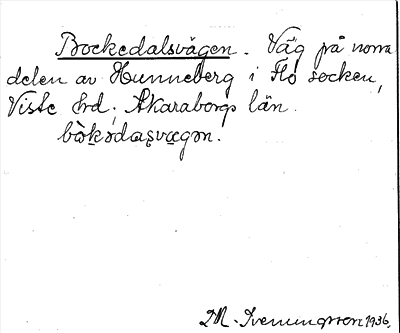 Bockedalsvägen. Väg på norra
delen av Hunneberg i Flo socken,
Viste hrd, Skaraborgs län.
bòkədasvægən.
M. Iveningsson 1936.